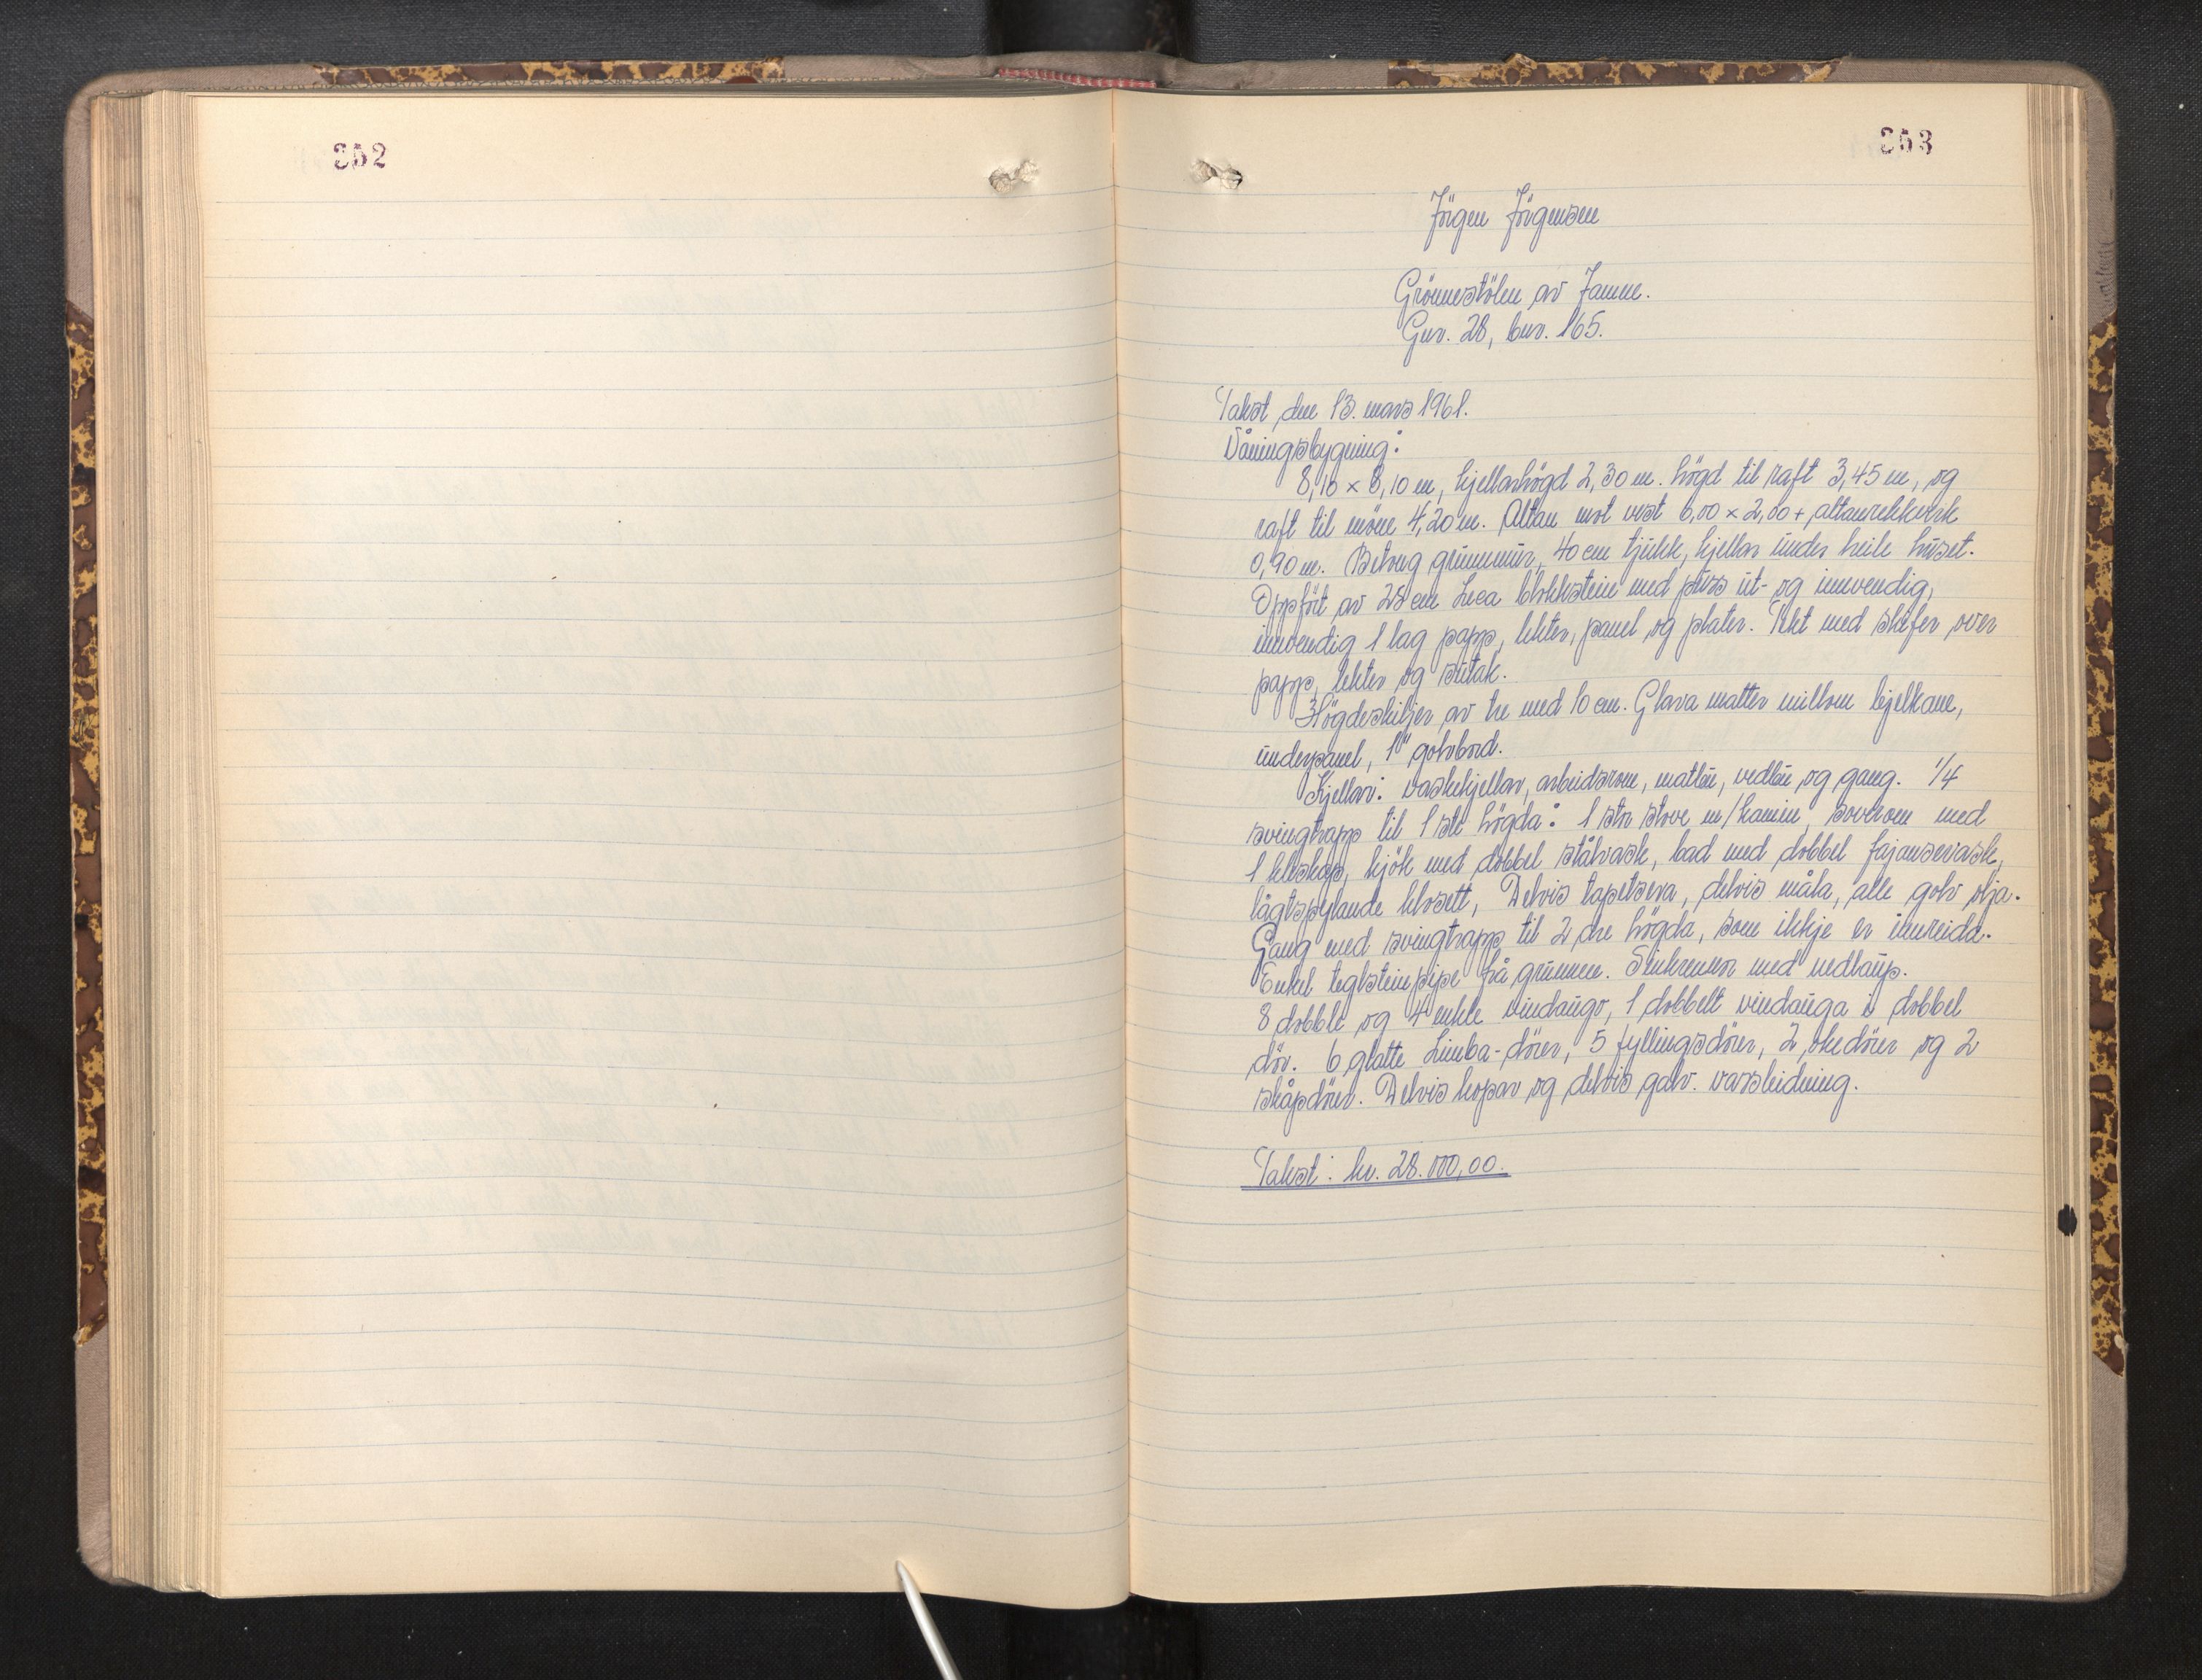 352
353
Jörgen Jörgensen
Grönnestölen av Janne.
Gnr. 28, bnr. 165.
Takst den 13. mars 1961.
Våningsbygning:
8,10 × 8,10 m, kjellarhögd 2,30 m. högd til raft 3,45 m, og
raft til möne 4,20 m. Altan mot vest 6,00 × 2,00 + altanrekkverk
0,90 m. Betong grunnmur, 40 cm tjukk, kjellar under heile huset.
Oppfört av 25 cm Leca blokkstein med puss ut- og innvendig,
innvendig 1 lag papp, lekter, panel og plater. Tekt med skifer over
papp, lekter og sutak.
Högdeskiljer av tre med 10 cm. Glava matter millom bjelkane,
underpanel, 1" golvbord.
Kjellar: vaskekjellar, arbeidsrom, matbu, vedbu og gang. 1/4
svingtrapp til 1ste högda: 1 stor stove m/kamin, soverom med
1 kleskap, kjök med dobbel stålvask, bad med dobbel fajansevask,
lågtspylande klosett, Delvis tapetsera, delvis måla, alle golv olja.
Gang med svingtrapp til 2 dre högda, som ikkje er innreida.
Enkel teglsteinpipe frå grunnen. Sinkrennor med nedlaup.
8 doble og 4 enkle vindaugo, 1 dobbelt vindauga i dobbel
dör. 6 glatte Limba-dörer, 5 fyllingsdörer, 2 okedörer og 2
skåpdörer. Delvis kopar og delvis galv. vassleidning.
Takst: kr. 28.000,00.